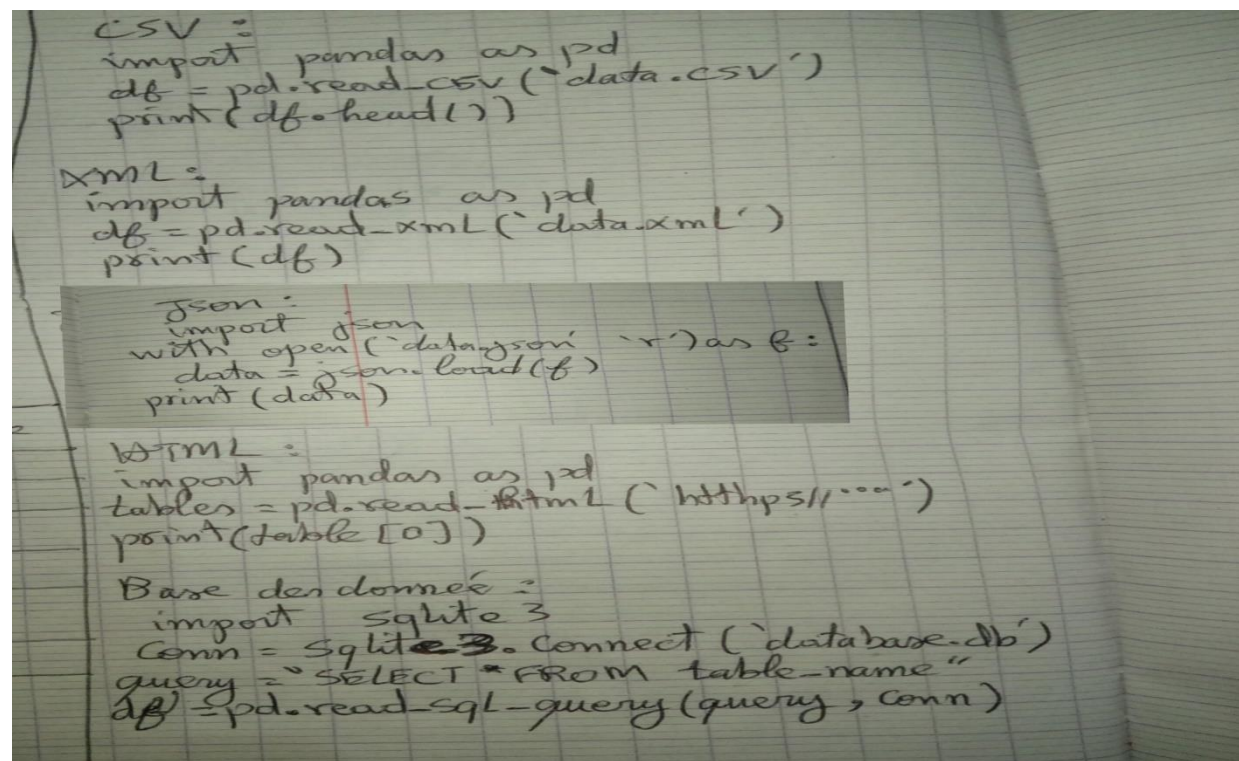 CSV :
import pandas as pd
df = pd.read_csv('data.csv')
print(df.head())
XML :
import pandas as pd
df = pd.read_xml('data.xml')
print(df)
Json :
import json
with open('data.json' 'r') as f :
data = json.load(f)
print(data)
HTML :
import pandas as pd
tables = pd.read_html('htthps// ....')
print(table[0])
Base des donneé :
import sqlite 3
Conn = sqlite3.connect('database.db')
query = "SELECT * FROM table_name"
df = pd.read_sql_query(query, conn)